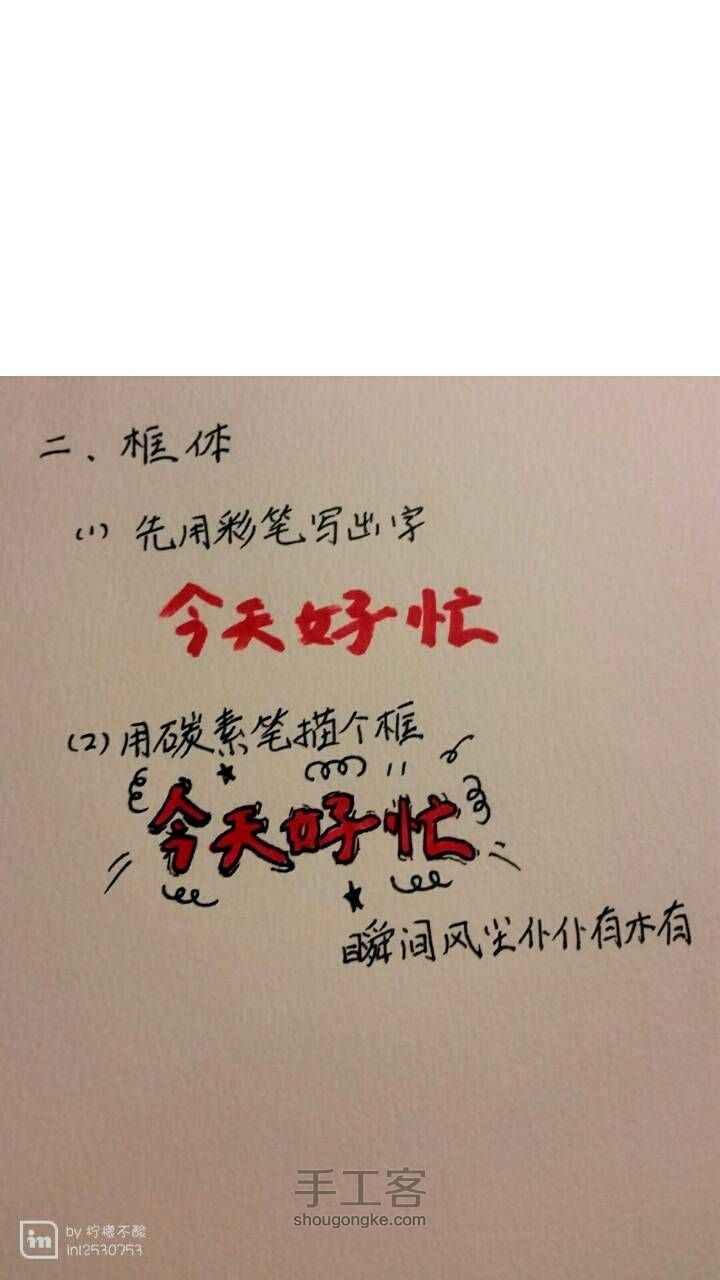 二、框体
(1) 先用彩笔写出字
今天好忙
(2) 用碳素笔描个框
今天好忙
瞬间风尘仆仆有木有
手工客
shougongke.com
in by 柠檬不酸
in12530753